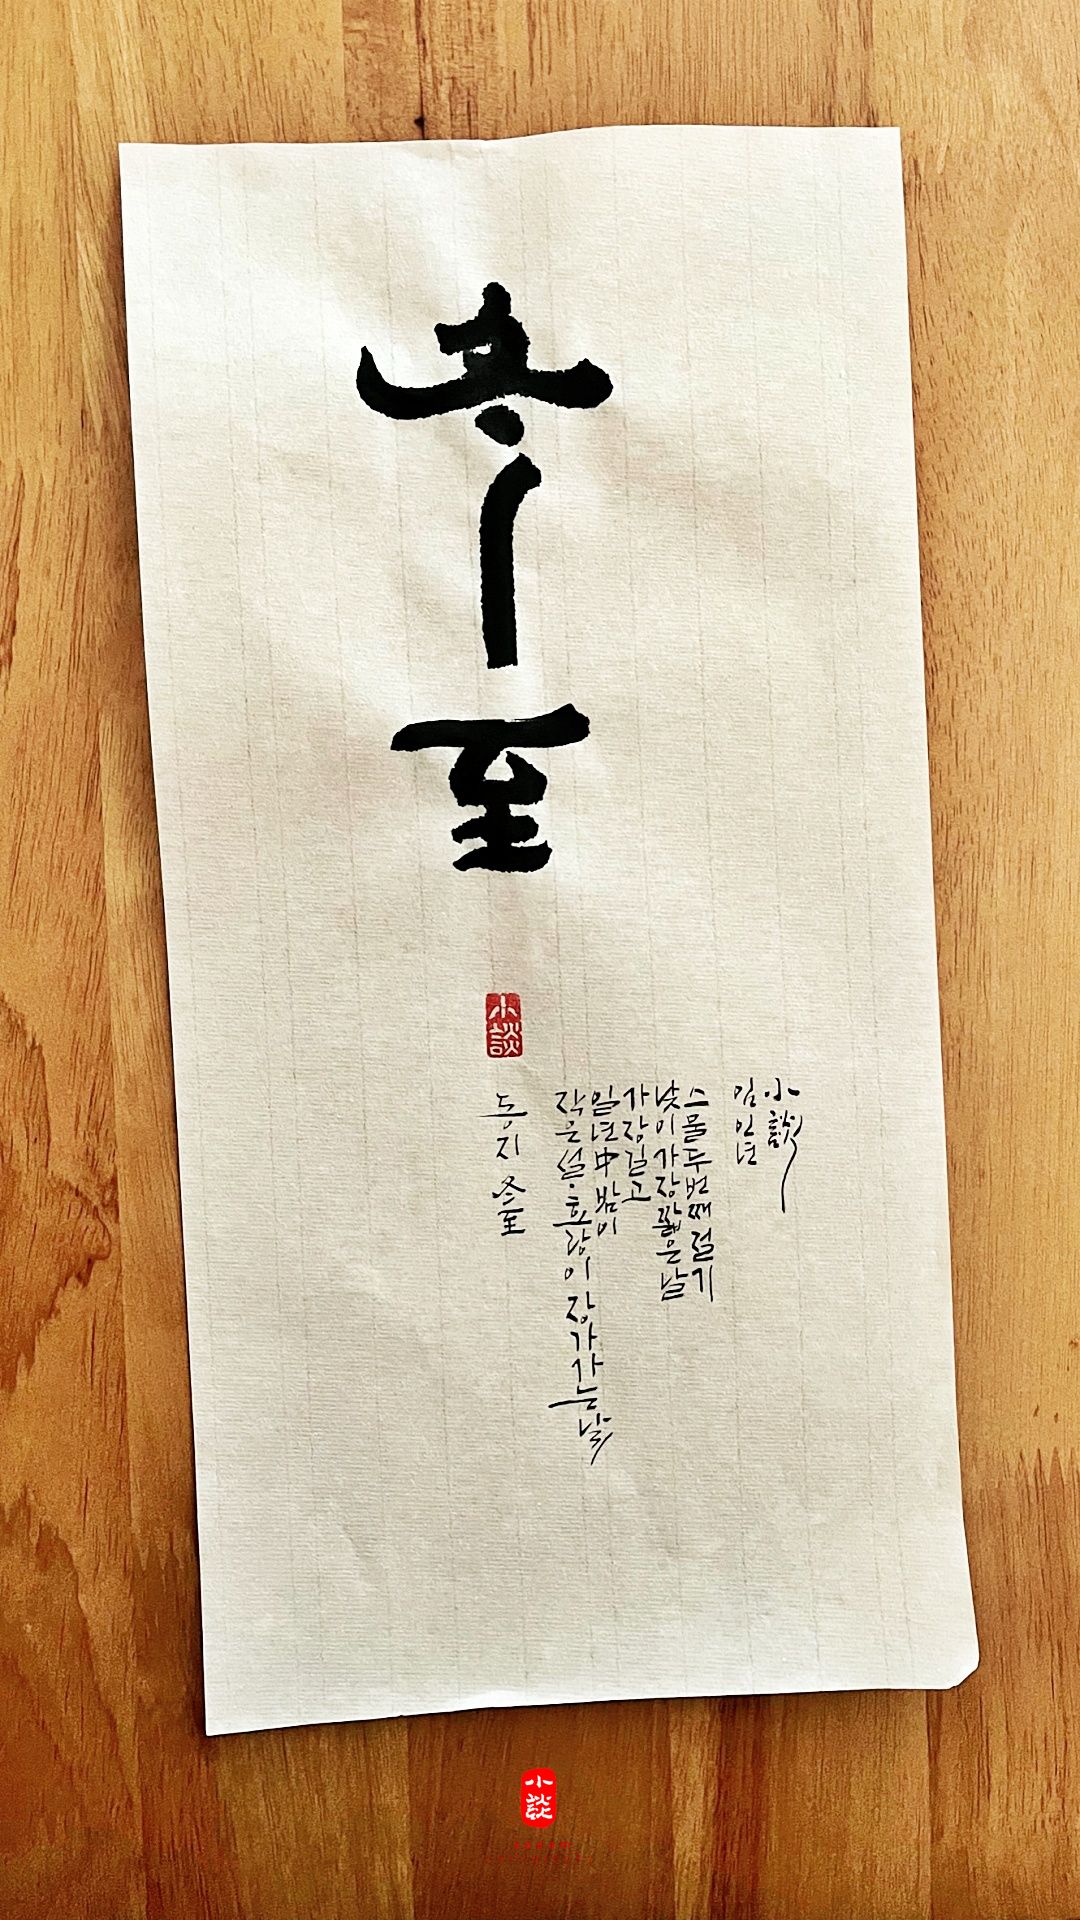 冬至
小談
동지 冬至
작은설·호랑이 장가가는 날
일년中 밤이
가장길고
낮이 가장짧은날
스물두번째절기
임인년
小談
小談